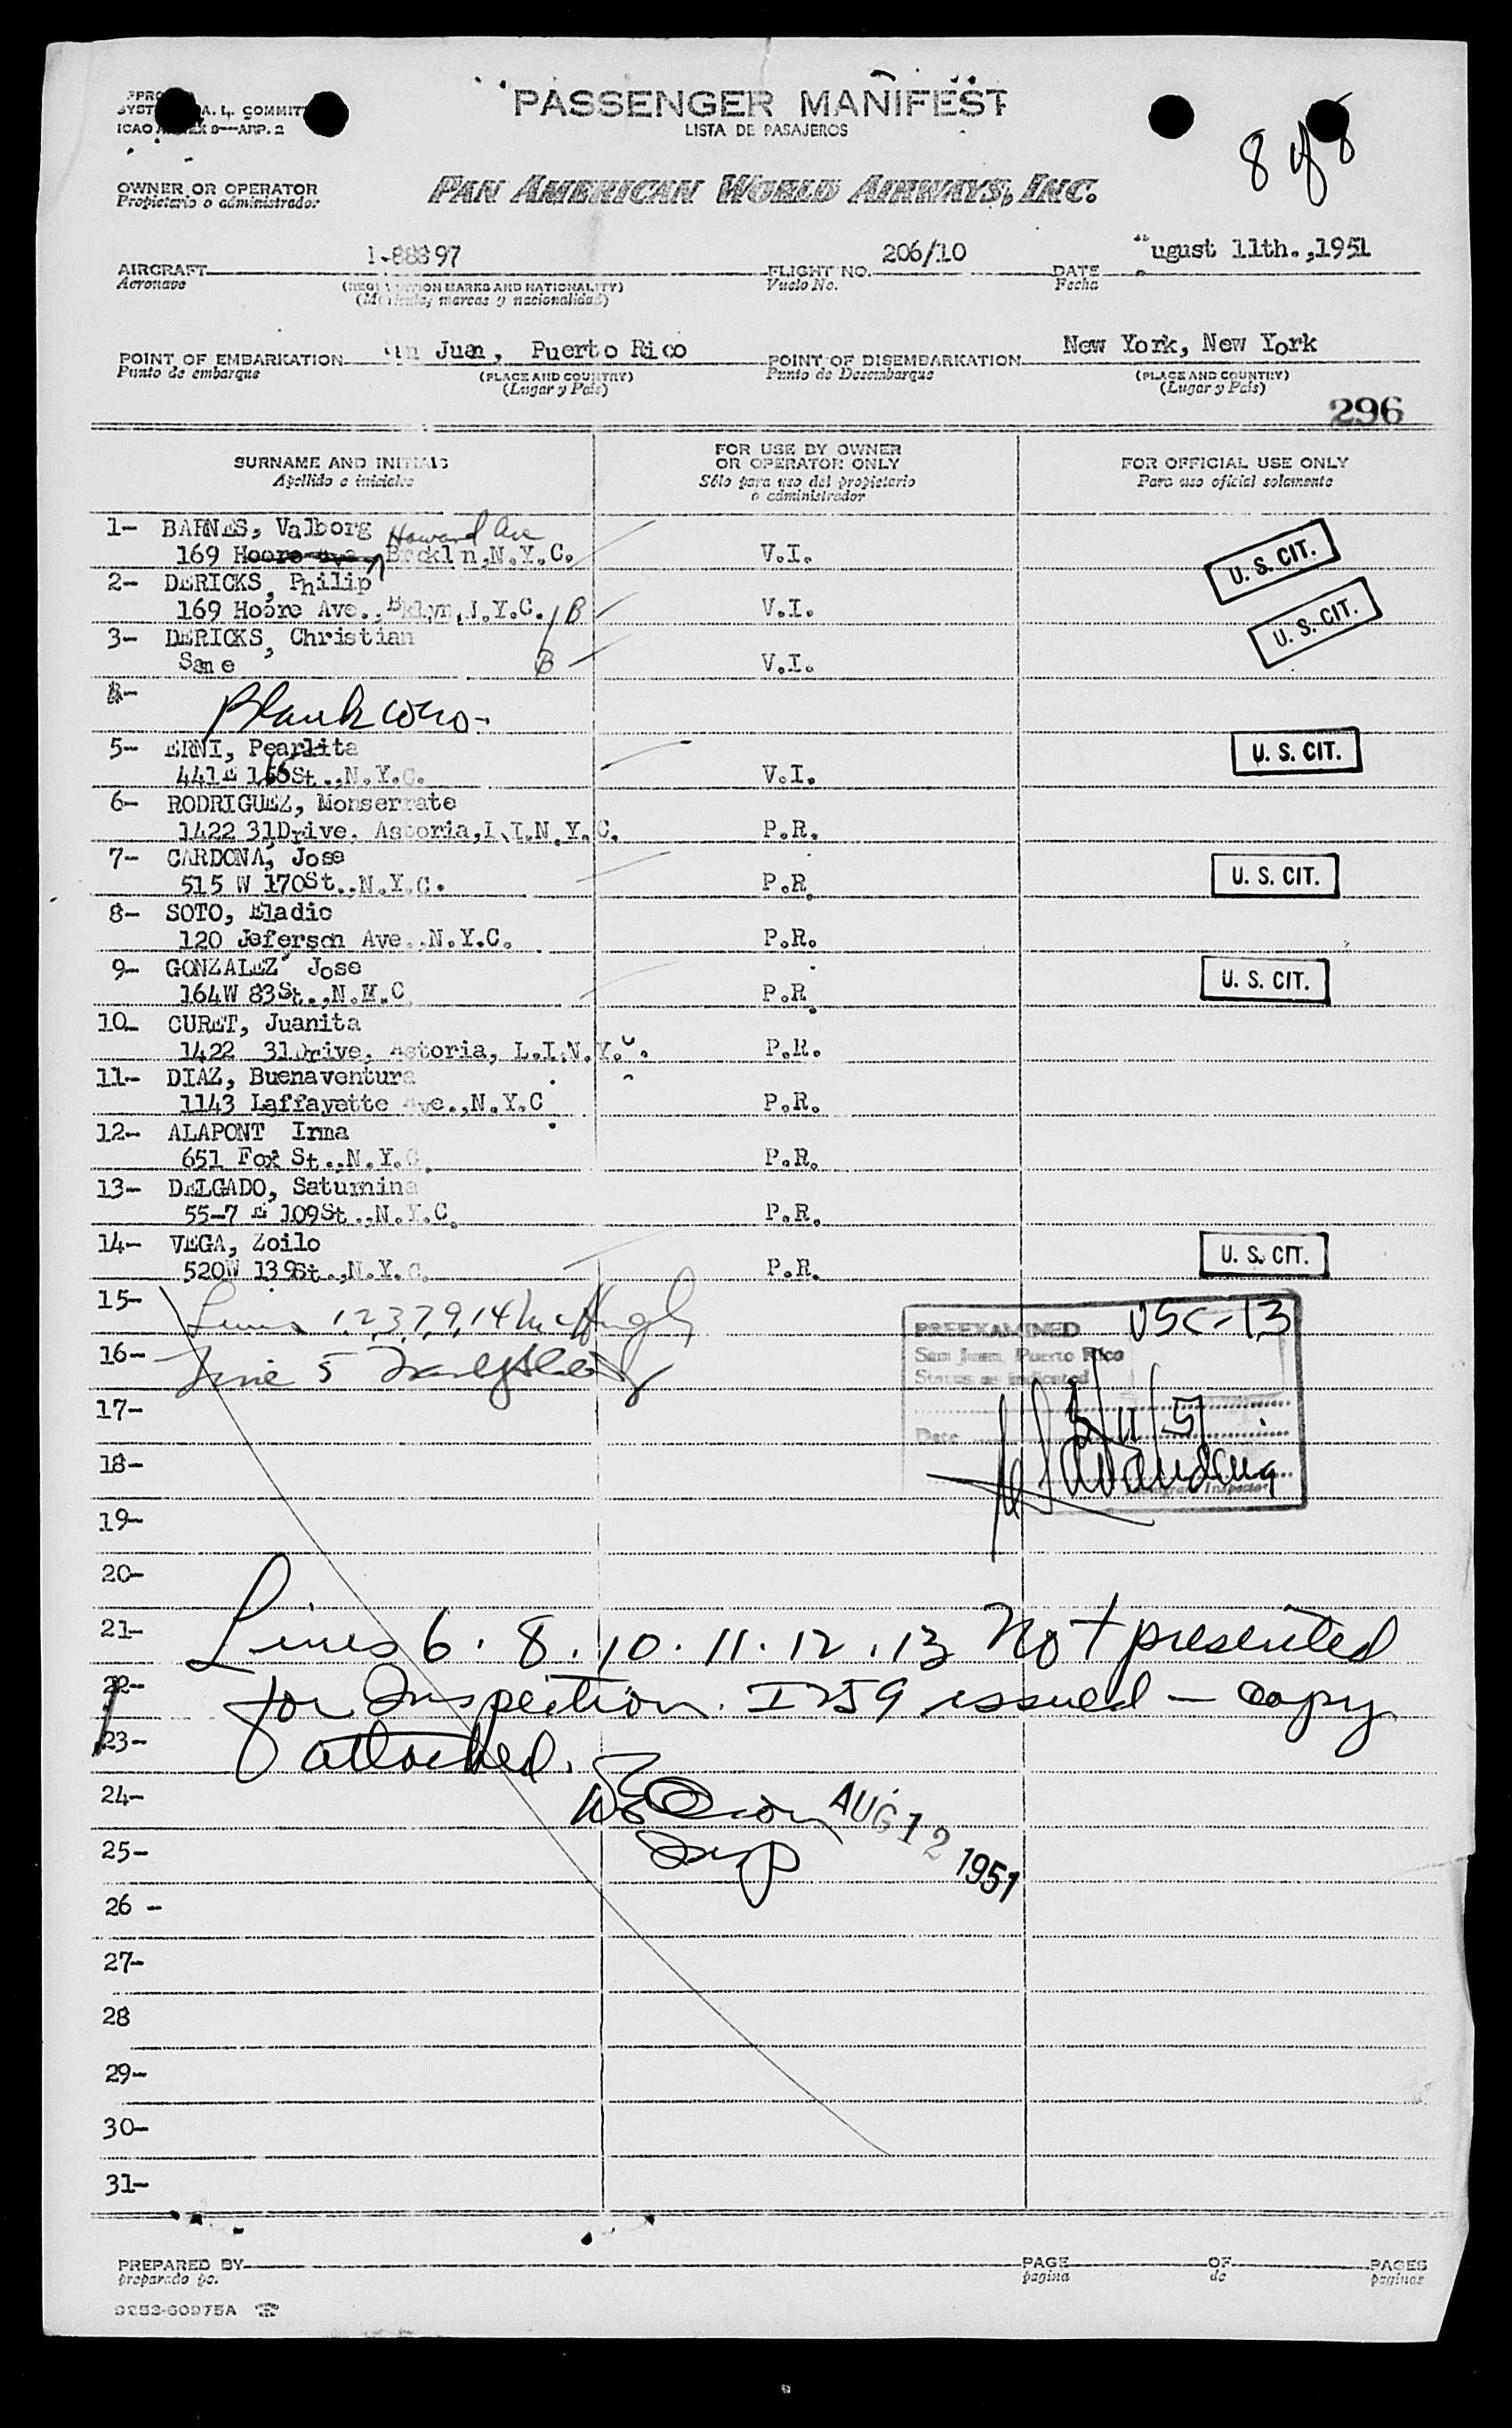 PASSENGER MANIFEST
LISTA DE PASAJEROS
A. L. COMMIT
ICAO ANNEX 9—APP. 2
8 of 8
OWNER OR OPERATOR
Propietario o administrador
PAN AMERICAN WORLD AIRWAYS, INC.
AIRCRAFT 88897 FLIGHT NO. 206/10 DATE ugust 11th.,1951
Aeronave Vuelo No. Fecha
(REGISTRATION MARKS AND NATIONALITY)
(Matricula, marcas y nacionalidad)
POINT OF EMBARKATION an Juan, Puerto Rico POINT OF DISEMBARKATION New York, New York
Punto de embarque Punto de Desembarque
(PLACE AND COUNTRY) (PLACE AND COUNTRY)
(Lugar y País) (Lugar y País)
296
SURNAME AND INITIALS FOR USE BY OWNER OR OPERATOR ONLY FOR OFFICIAL USE ONLY
Apellido e iniciales Sólo para uso del propietario o administrador Para uso oficial solamente
1- BARNES, Valborg Howard Ave
169 Hoore ave, Brokln,N.Y.C. V.I. U. S. CIT.
2- DERICKS, Philip
169 Hoore Ave., Bklyn,N.Y.C. B V.I. U. S. CIT.
3- DERICKS, Christian
Same B V.I.
4- Blank
5- ERNI, Pearlita
441E 166St.,N.Y.C. V.I. U. S. CIT.
6- RODRIGUEZ, Monserrate
1422 31Drive, Astoria,L.I.N.Y.C. P.R.
7- CARDONA, Jose
515 W 170St.,N.Y.C. P.R. U. S. CIT.
8- SOTO, Eladio
120 Jeferson Ave.,N.Y.C. P.R.
9- GONZALEZ Jose
164W 83St.,N.Y.C P.R. U. S. CIT.
10- CURET, Juanita
1422 31Drive, Astoria, L.I.N.Y.C. P.R.
11- DIAZ, Buenaventura
1143 Laffayette Ave.,N.Y.C P.R.
12- ALAPONT Irma
651 Fox St.,N.Y.C. P.R.
13- DELGADO, Saturnina
55-7 E 109St.,N.Y.C. P.R.
14- VEGA, Zoilo
520W 139St.,N.Y.C. P.R. U. S. CIT.
15- Lines 1,2,3,7,9,14 McHugh
16- Line 5
PREEXAMINED USC-13
San Juan, Puerto Rico
Status as indicated
Date 8/11/51
Immigrant Inspector
17-
18-
19-
20-
21- Lines 6. 8. 10. 11. 12. 13 Not presented
22- for Inspection. I 259 issued — copy
23- attached.
24- AUG 12 1951
25- Insp
26 -
27-
28
29-
30-
31-
PREPARED BY PAGE OF PAGES
preparado po. pagina de paginas
9252-60975A